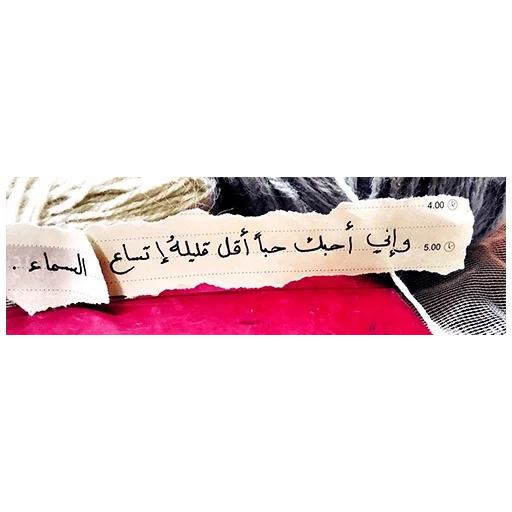 4.00
وإني أحبك حباً أقل قليلهُ إتساع السماء .
5.00